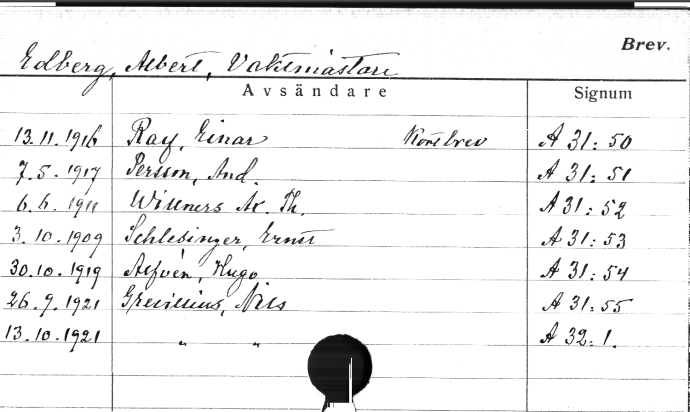 Brev.
Edberg, Albert, Vaktmästare
Avsändare Signum
13.11.1916 Ray, Einar Korsbrev A 31:50
7.5.1917 Persson, And. A 31:51
6.6.1911 Willners Ax. Th. A 31:52
3.10.1909 Schlesinger, Ernst A 31:53
30.10.1919 Alfvén, Hugo A 31:54
26.9.1921 Grevillius, Nils A 31:55
13.10.1921 „ „ A 32:1.